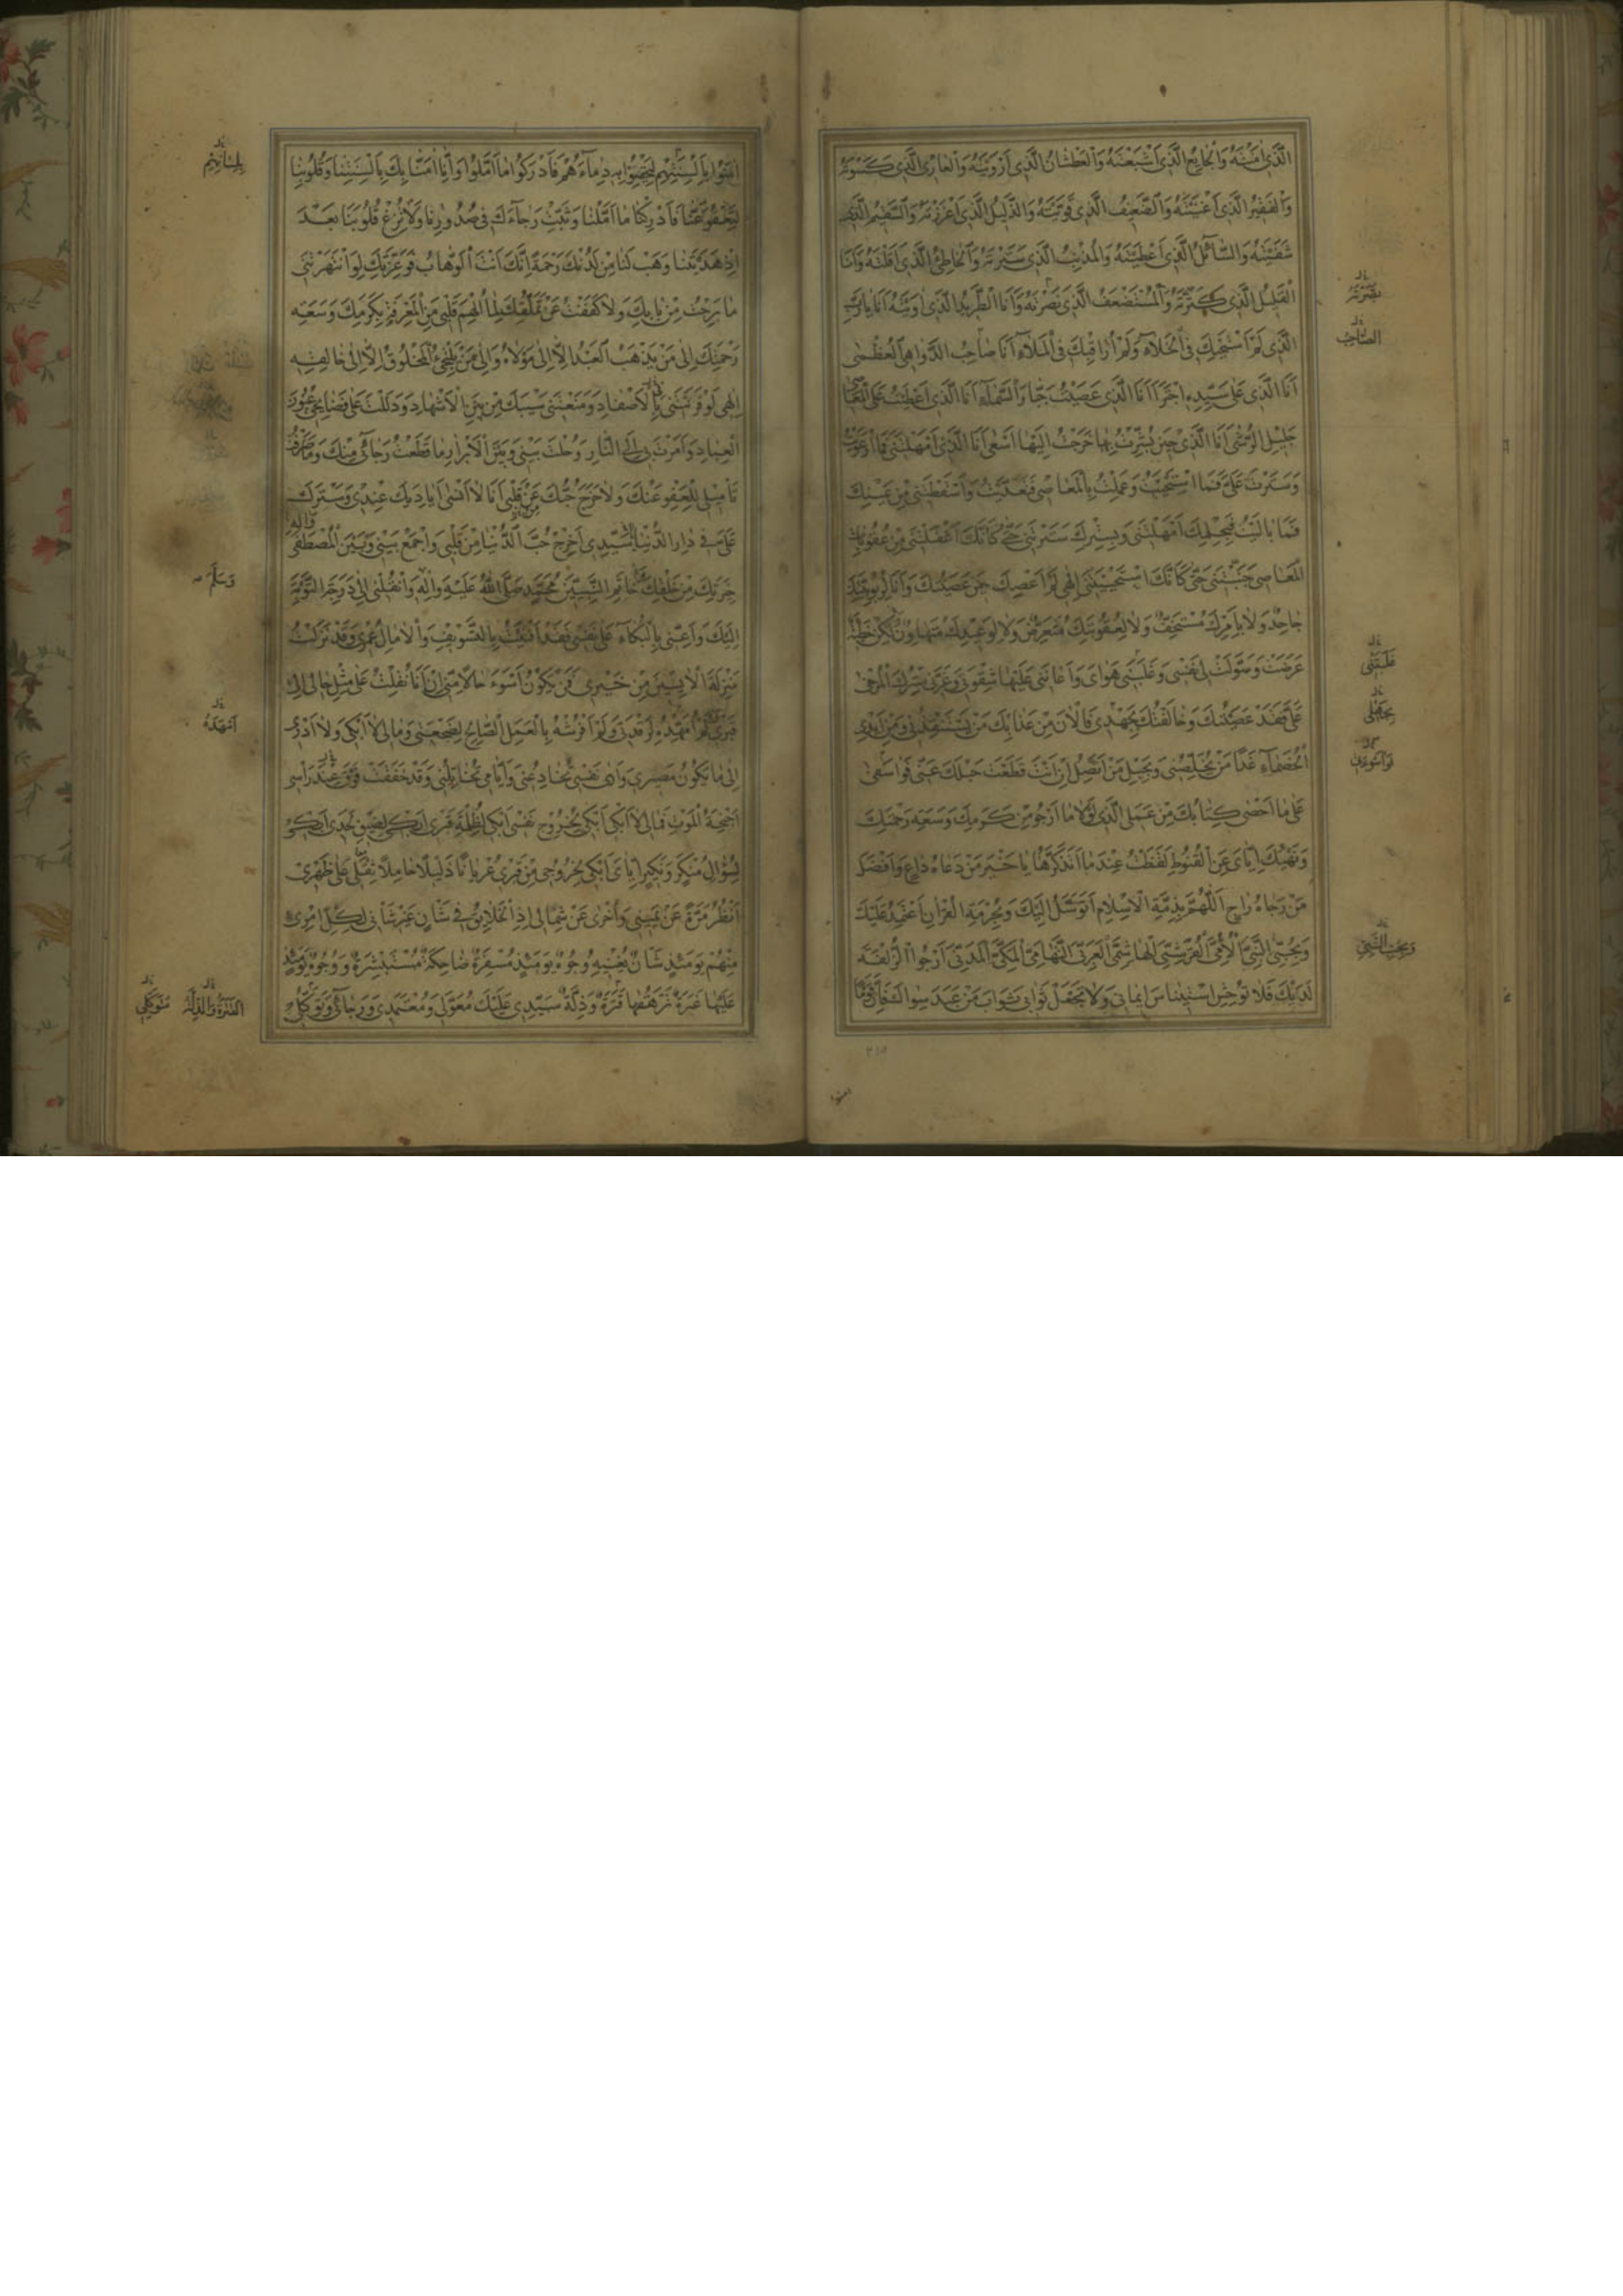 الَّذِي امَنْتَهُ وَالْجَايِعُ الَّذِي اَشْبَعْتَهُ وَالْعَطْشَانُ الَّذِي اَرْوَيْتَهُ وَالْعَارِي الَّذِي كَسَوْتَهُ
وَالْفَقِيرُ الَّذِي اَغْنَيْتَهُ وَالضَّعِيفُ الَّذِي قَوَّيْتَهُ وَالذَّلِيلُ الَّذِي اَعْزَزْتَهُ وَالسَّقِيمُ الَّذِي
شَفَيْتَهُ وَالسَّائِلُ الَّذِي اَعْطَيْتَهُ وَالْمُذْنِبُ الَّذِي سَتَرْتَهُ وَالْخَاطِئُ الَّذِي اَقَلْتَهُ وَاَنَا
الْقَلِيلُ الَّذِي كَثَّرْتَهُ وَالْمُسْتَضْعَفُ الَّذِي نَصَرْتَهُ وَاَنَا الطَّرِيدُ الَّذِي اوَيْتَهُ اَنَا يَا رَبِّ
الَّذِي لَمْ اَسْتَحْيِكَ فِي الْخَلَاءِ وَلَمْ اُرَاقِبْكَ فِي الْمَلَاءِ اَنَا صَاحِبُ الدَّوَاهِي الْعُظْمَى
اَنَا الَّذِي عَلَى سَيِّدِهِ اجْتَرَا اَنَا الَّذِي عَصَيْتُ جَبَّارَ السَّمَاءِ اَنَا الَّذِي اَعْطَيْتُ عَلَى الْمَعَاصِي
جَلِيلِ الرُّشَى اَنَا الَّذِي حِينَ بُشِّرْتُ بِهَا خَرَجْتُ اِلَيْهَا اَسْعَى اَنَا الَّذِي اَمْهَلْتَنِي فَمَا ارْعَوَيْتُ
وَسَتَرْتَ عَلَيَّ فَمَا اسْتَحْيَيْتُ وَعَمِلْتُ بِالْمَعَاصِي فَتَعَدَّيْتُ وَاَسْقَطْتَنِي مِنْ عَيْنِكَ
فَمَا بَالَيْتُ فَبِحِلْمِكَ اَمْهَلْتَنِي وَبِسِتْرِكَ سَتَرْتَنِي حَتَّى كَاَنَّكَ اَغْفَلْتَنِي وَمِنْ عُقُوبَاتِ
الْمَعَاصِي جَنَّبْتَنِي حَتَّى كَاَنَّكَ اسْتَحْيَيْتَنِي اِلَهِي لَمْ اَعْصِكَ حِينَ عَصَيْتُكَ وَاَنَا بِرُبُوبِيَّتِكَ
جَاحِدٌ وَلَا بِاَمْرِكَ مُسْتَخِفٌّ وَلَا لِعُقُوبَتِكَ مُتَعَرِّضٌ وَلَا لِوَعِيدِكَ مُتَهَاوِنٌ لَكِنْ خَطِيئَةٌ
عَرَضَتْ وَسَوَّلَتْ لِي نَفْسِي وَغَلَبَنِي هَوَايَ وَاَعَانَنِي عَلَيْهَا شِقْوَتِي وَغَرَّنِي سِتْرُكَ الْمُرْخَى
عَلَيَّ فَقَدْ عَصَيْتُكَ وَخَالَفْتُكَ بِجُهْدِي فَالْانَ مِنْ عَذَابِكَ مَنْ يَسْتَنْقِذُنِي وَمِنْ اَيْدِي
الْخُصَمَاءِ غَدًا مَنْ يُخَلِّصُنِي وَبِحَبْلِ مَنْ اَتَّصِلُ اِنْ اَنْتَ قَطَعْتَ حَبْلَكَ عَنِّي فَوَا سَفَى
عَلَى مَا اَحْصَى كِتَابُكَ مِنْ عَمَلِي الَّذِي لَوْلَا مَا اَرْجُو مِنْ كَرَمِكَ وَسَعَةِ رَحْمَتِكَ
وَنَهْيِكَ اِيَّايَ عَنِ الْقُنُوطِ لَقَنَطْتُ عِنْدَ مَا اَتَذَكَّرُهَا يَا خَيْرَ مَنْ دَعَاهُ دَاعٍ وَاَفْضَلَ
مَنْ رَجَاهُ رَاجٍ اَللَّهُمَّ بِذِمَّةِ الْاِسْلَامِ اَتَوَسَّلُ اِلَيْكَ وَبِحُرْمَةِ الْقُرْانِ اَعْتَمِدُ عَلَيْكَ
وَبِحُبِّي النَّبِيَّ الْاُمِّيَّ الْقُرَشِيَّ الْهَاشِمِيَّ الْعَرَبِيَّ التِّهَامِيَّ الْمَكِّيَّ الْمَدَنِيَّ اَرْجُو الزُّلْفَةَ
لَدَيْكَ فَلَا تُوحِشِ اسْتِينَاسَ اِيمَانِي وَلَا تَجْعَلْ ثَوَابِي ثَوَابَ مَنْ عَبَدَ سِوَاكَ فَاِنَّ قَوْمًا
نَصَرْتَهُ
الصَّاحِبُ
غَلَبَتْنِي
بِجَهْلِي
وَبِحُبِّ النَّبِيِّ
٢١٥
امنوا
امَنُوا بِاَلْسِنَتِهِمْ لِيَحْقِنُوا بِهِ دِمَاءَهُمْ فَاَدْرَكُوا مَا اَمَّلُوا وَاِنَّا امَنَّا بِكَ بِاَلْسِنَتِنَا وَقُلُوبِنَا
لِتَعْفُوَ عَنَّا فَاَدْرِكْنَا مَا اَمَّلْنَا وَثَبِّتْ رَجَاءَكَ فِي صُدُورِنَا وَلَا تُزِغْ قُلُوبَنَا بَعْدَ
اِذْ هَدَيْتَنَا وَهَبْ لَنَا مِنْ لَدُنْكَ رَحْمَةً اِنَّكَ اَنْتَ الْوَهَّابُ فَوَعِزَّتِكَ لَوِ انْتَهَرْتَنِي
مَا بَرِحْتُ مِنْ بَابِكَ وَلَا كَفَفْتُ عَنْ تَمَلُّقِكَ لِمَا اُلْهِمَ قَلْبِي مِنَ الْمَعْرِفَةِ بِكَرَمِكَ وَسَعَةِ
رَحْمَتِكَ اِلَى مَنْ يَذْهَبُ الْعَبْدُ اِلَّا اِلَى مَوْلَاهُ وَاِلَى مَنْ يَلْتَجِئُ الْمَخْلُوقُ اِلَّا اِلَى خَالِقِهِ
اِلَهِي لَوْ قَرَنْتَنِي بِالْاَصْفَادِ وَمَنَعْتَنِي سَيْبَكَ مِنْ بَيْنِ الْاَشْهَادِ وَدَلَلْتَ عَلَى فَضَايِحِي عُيُونَ
الْعِبَادِ وَاَمَرْتَ بِي اِلَى النَّارِ وَحُلْتَ بَيْنِي وَبَيْنَ الْاَبْرَارِ مَا قَطَعْتُ رَجَائِي مِنْكَ وَمَا صَرَفْتُ
تَامِيلِي لِلْعَفْوِ عَنْكَ وَلَا خَرَجَ حُبُّكَ عَنْ قَلْبِي اَنَا لَا اَنْسَى اَيَادِيَكَ عِنْدِي وَسَتْرَكَ
عَلَيَّ فِي دَارِ الدُّنْيَا سَيِّدِي اَخْرِجْ حُبَّ الدُّنْيَا مِنْ قَلْبِي وَاجْمَعْ بَيْنِي وَبَيْنَ الْمُصْطَفَى وَالِهِ
خِيَرَتِكَ مِنْ خَلْقِكَ خَاتَمِ النَّبِيِّينَ مُحَمَّدٍ صَلَّى اللهُ عَلَيْهِ وَالِهِ وَانْقُلْنِي اِلَى دَرَجَةِ التَّوْبَةِ
اِلَيْكَ وَاَعِنِّي بِالْبُكَاءِ عَلَى نَفْسِي فَقَدْ اَفْنَيْتُ بِالتَّسْوِيفِ وَالْامَالِ عُمْرِي وَقَدْ نَزَلْتُ
مَنْزِلَةَ الْايِسِينَ مِنْ خَيْرِي فَمَنْ يَكُونُ اَسْوَءَ حَالًا مِنِّي اِنْ اَنَا نُقِلْتُ عَلَى مِثْلِ حَالِي اِلَى
قَبْرِي لَمْ اُمَهِّدْهُ لِرَقْدَتِي وَلَمْ اَفْرُشْهُ بِالْعَمَلِ الصَّالِحِ لِضَجْعَتِي وَمَا لِي لَا اَبْكِي وَلَا اَدْرِي
اِلَى مَا يَكُونُ مَصِيرِي وَاَرَى نَفْسِي تُخَادِعُنِي وَاَيَّامِي تُخَاتِلُنِي وَقَدْ خَفَقَتْ فَوْقَ رَاْسِي
اَجْنِحَةُ الْمَوْتِ فَمَا لِي لَا اَبْكِي اَبْكِي لِخُرُوجِ نَفْسِي اَبْكِي لِظُلْمَةِ قَبْرِي اَبْكِي لِضِيقِ لَحْدِي اَبْكِي
لِسُؤَالِ مُنْكَرٍ وَنَكِيرٍ اِيَّايَ اَبْكِي لِخُرُوجِي مِنْ قَبْرِي عُرْيَانًا ذَلِيلًا حَامِلًا ثِقْلِي عَلَى ظَهْرِي
اَنْظُرُ مَرَّةً عَنْ يَمِينِي وَاُخْرَى عَنْ شِمَالِي اِذِ الْخَلَايِقُ فِي شَاْنٍ غَيْرِ شَاْنِي لِكُلِّ امْرِئٍ
مِنْهُمْ يَوْمَئِذٍ شَاْنٌ يُغْنِيهِ وُجُوهٌ يَوْمَئِذٍ مُسْفِرَةٌ ضَاحِكَةٌ مُسْتَبْشِرَةٌ وَوُجُوهٌ يَوْمَئِذٍ
عَلَيْهَا غَبَرَةٌ تَرْهَقُهَا قَتَرَةٌ وَذِلَّةٌ سَيِّدِي عَلَيْكَ مُعَوَّلِي وَمُعْتَمَدِي وَرَجَائِي وَتَوَكُّلِي
بِلِسَانِهِمْ
وَسَلَّمَ
اُمَهِّدْهُ